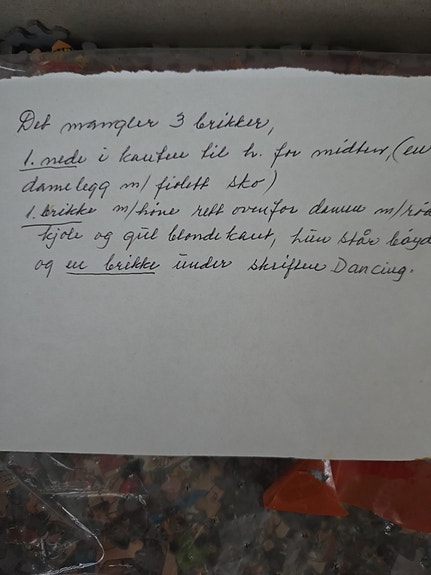 Det mangler 3 brikker,
1. nede i kanten til h. for midten, (en
damelegg m/ fiolett sko)
1. brikke m/høne rett ovenfor damen m/rød
kjole og gul blondekant, hun står bøyd
og en brikke under skriften Dancing.